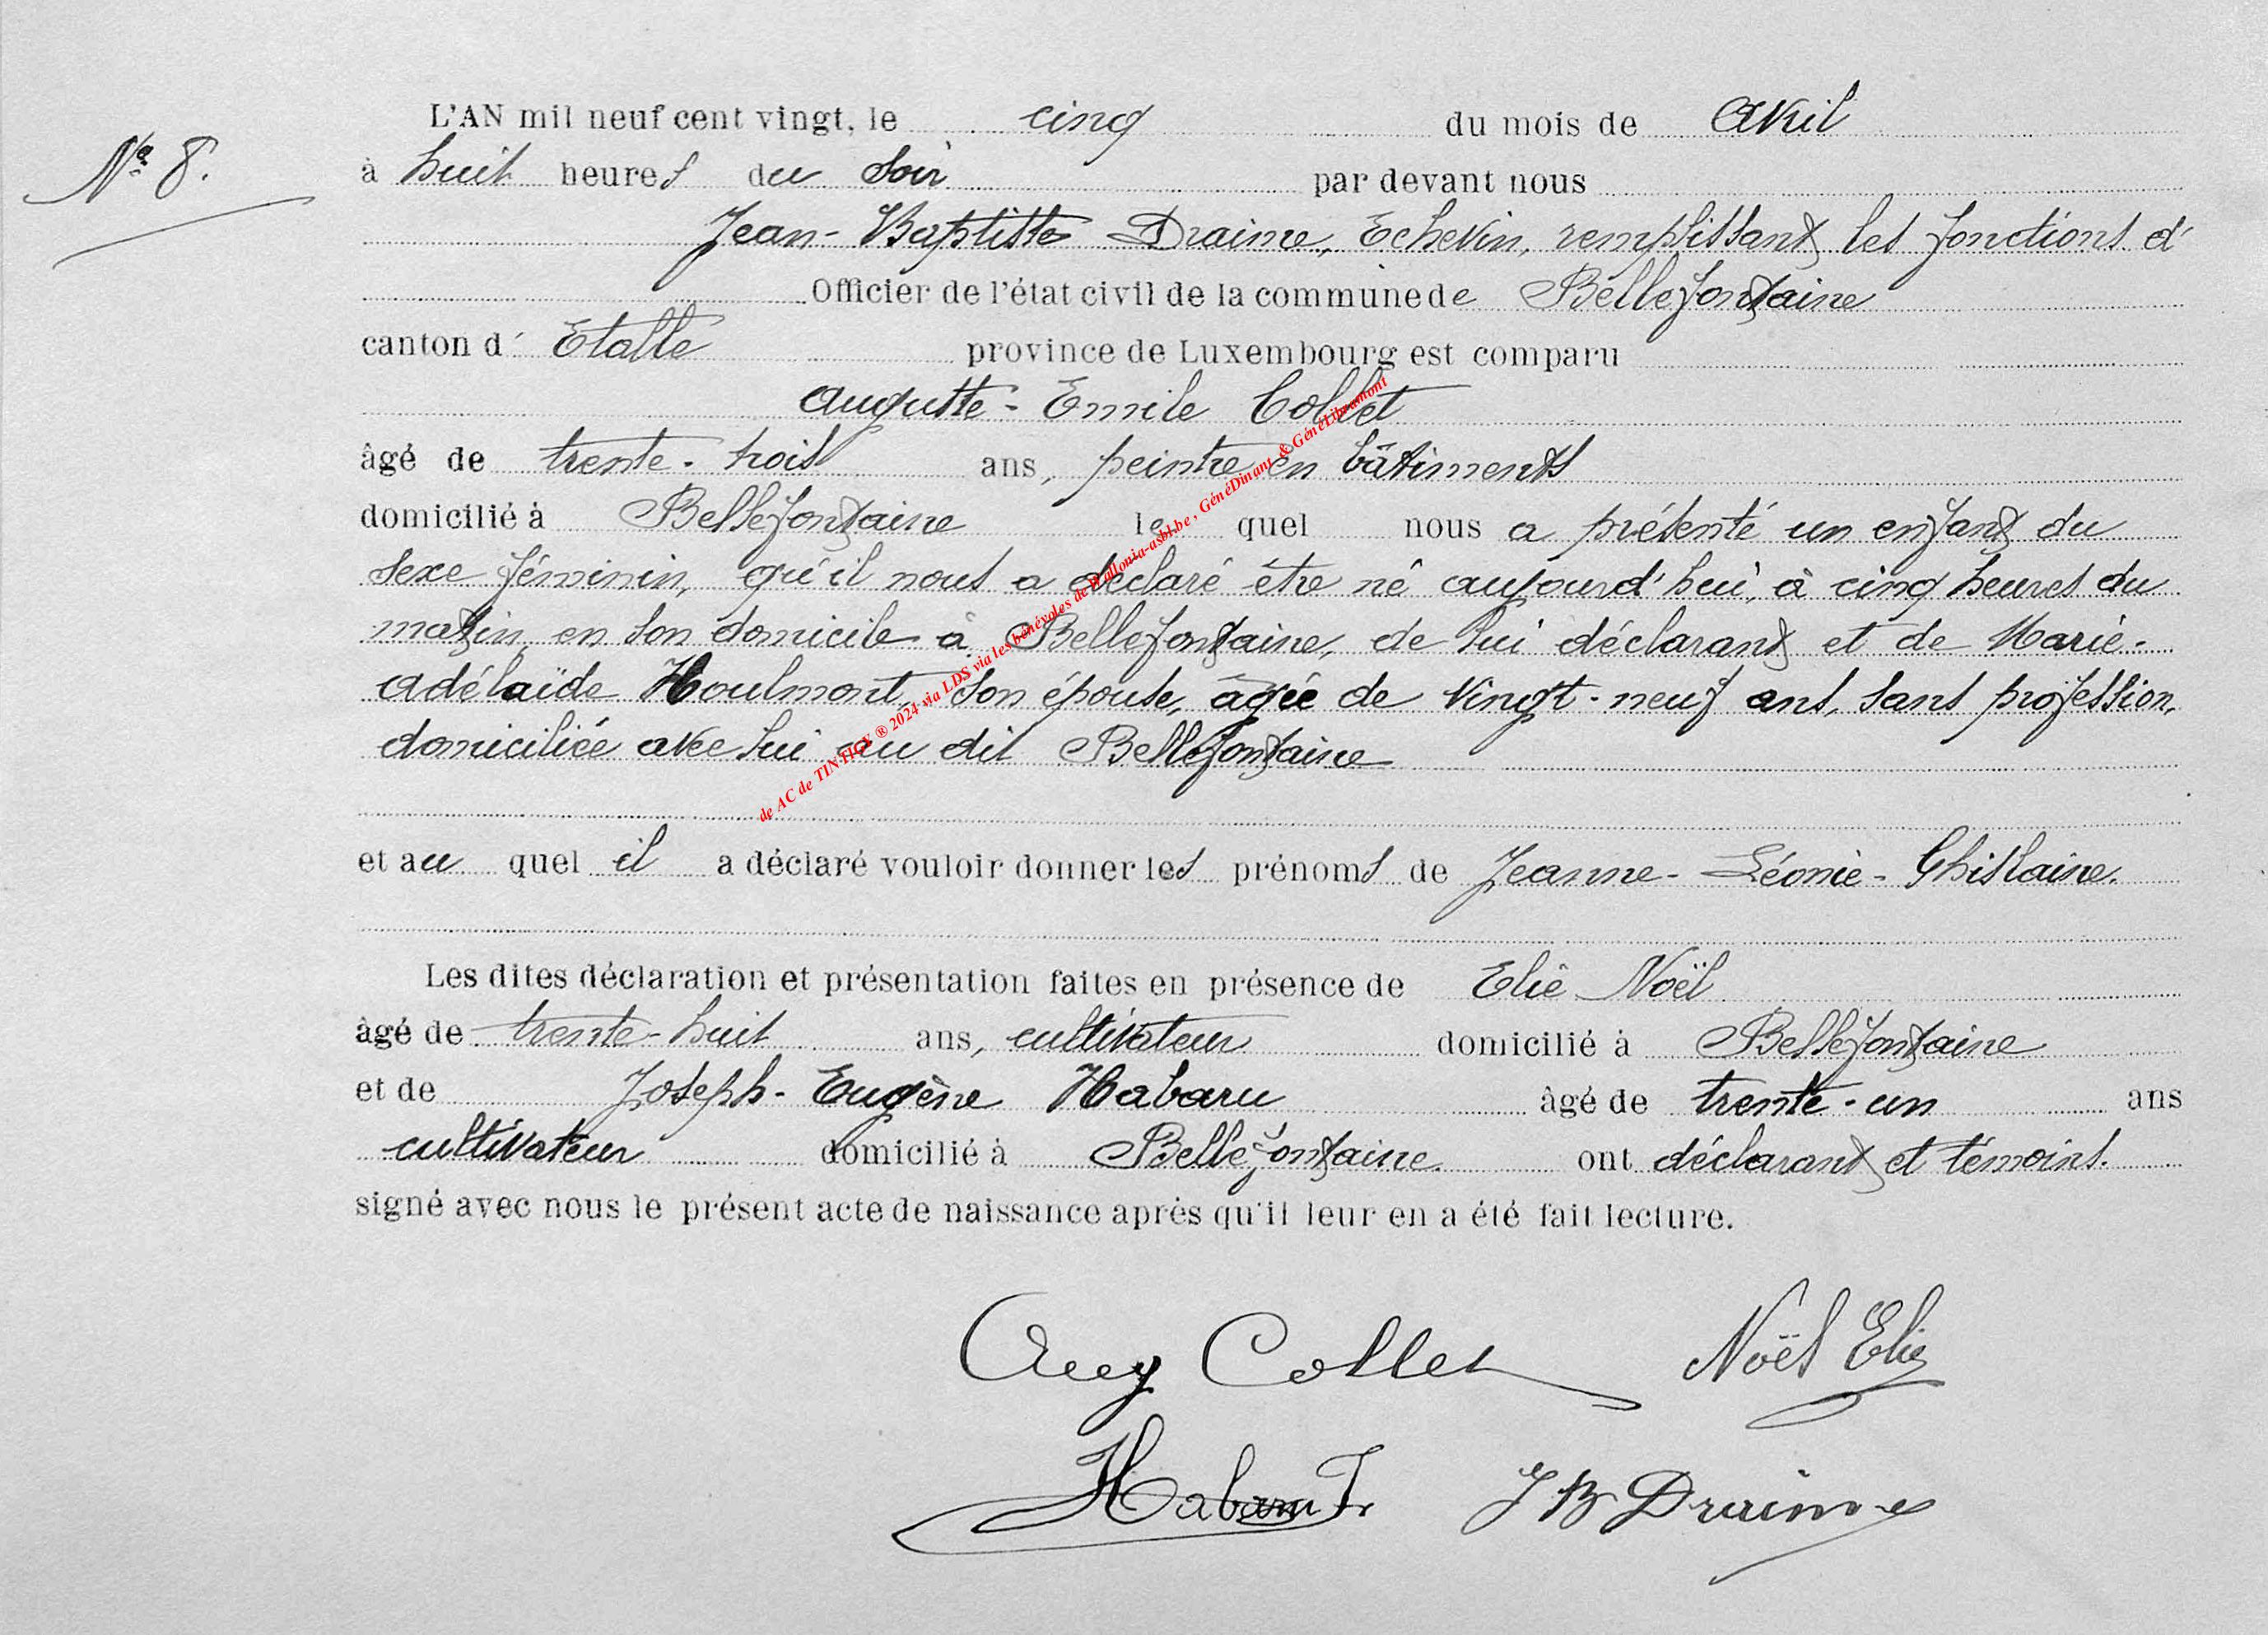 N° 8.
L'AN mil neuf cent vingt, le cinq du mois de Avril
à huit heures du soir par devant nous
Jean-Baptiste Draime, Echevin, remplissant les fonctions d'
Officier de l'état civil de la commune de Bellefontaine
canton d' Etalle province de Luxembourg est comparu
Auguste-Emile Collet
âgé de trente-trois ans, peintre en bâtiments
domicilié à Bellefontaine lequel nous a présenté un enfant du
sexe féminin, qu'il nous a déclaré être né aujourd'hui, à cinq heures du
matin, en son domicile à Bellefontaine, de lui déclarant et de Marie-
Adélaïde Houlmont, son épouse, agée de vingt-neuf ans, sans profession,
domiciliée avec lui au dit Bellefontaine
et au quel il a déclaré vouloir donner les prénoms de Jeanne-Léonie-Ghislaine.
Les dites déclaration et présentation faites en présence de Elie Noël
âgé de trente-huit ans, cultivateur domicilié à Bellefontaine
et de Joseph-Eugène Habaru âgé de trente-un ans
cultivateur domicilié à Bellefontaine ont déclarant et témoins.
signé avec nous le présent acte de naissance après qu'il leur en a été fait lecture.
Aug Collet Noël Elie
Habaru J. J B Draime
de AC de TINTIGNY ® 2024 via LDS via les bénévoles de Wallonia-asbl.be, GénéDinant & GénéLibramont